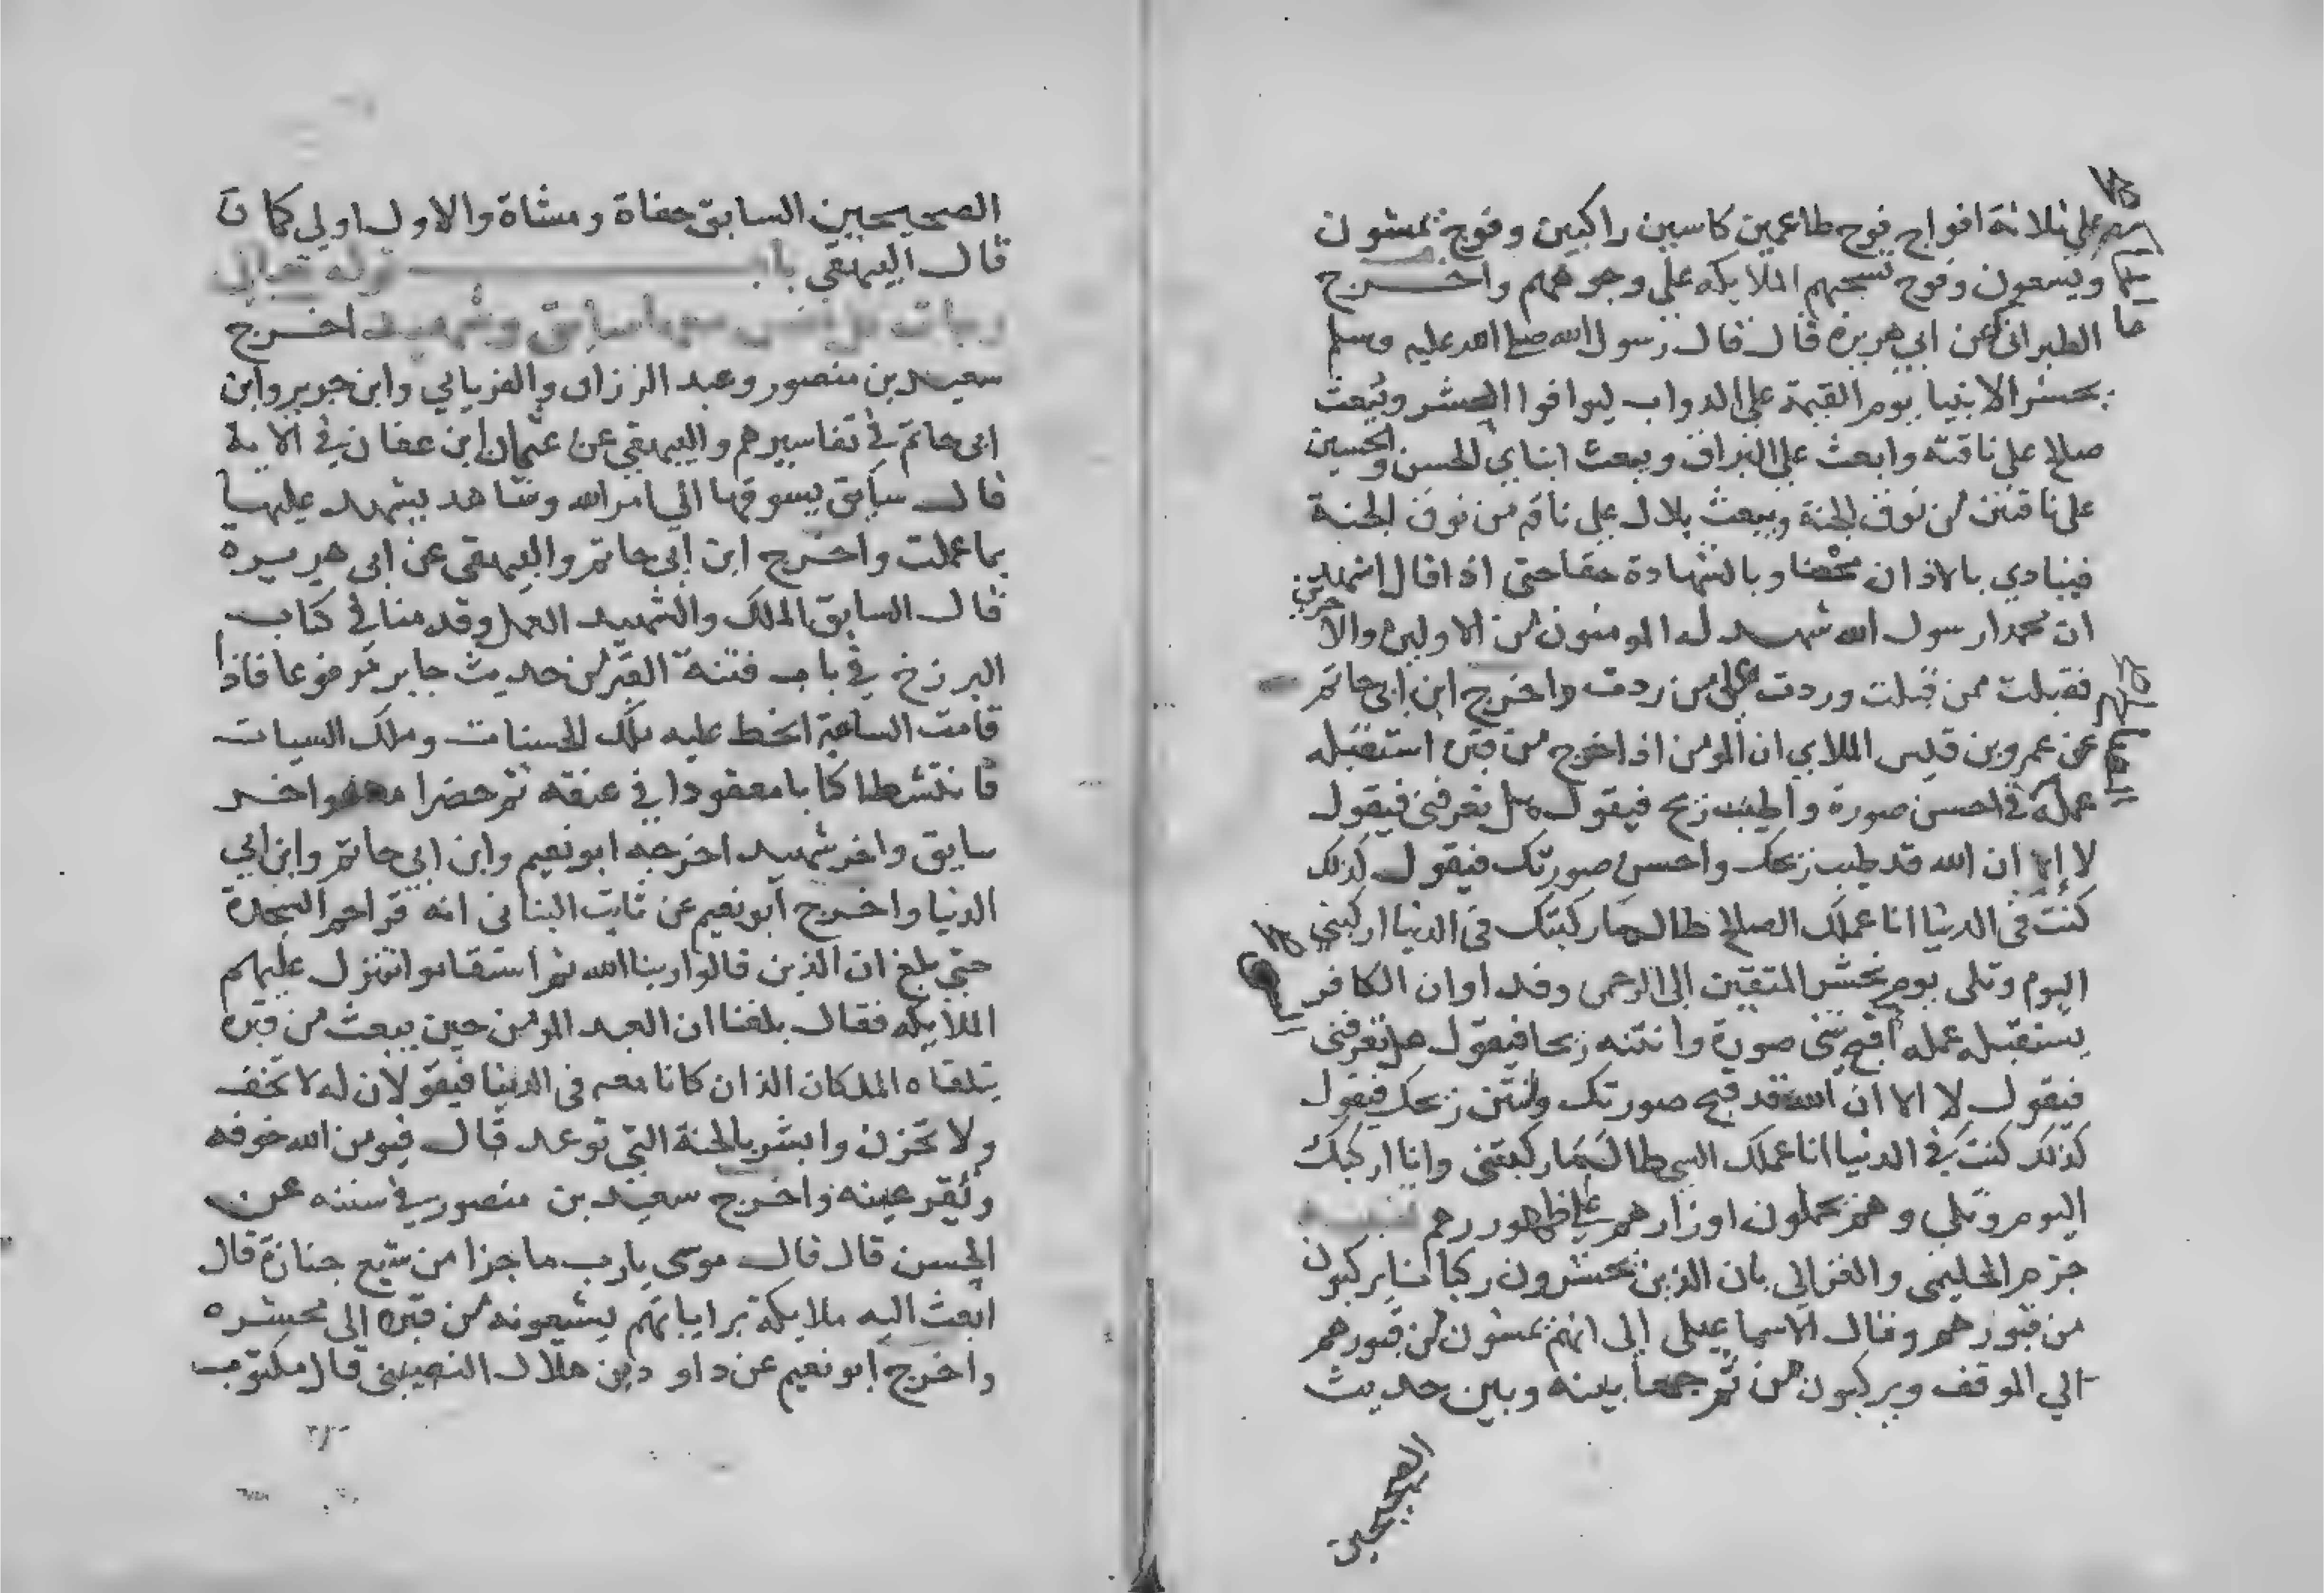 على ثلاثة افواج فوج طاعمين كاسين راكبين وفوج يمشون
ويسعون وفوج تسحبهم الملايكه على وجوههم واخرج
الطبرانى عن ابي هريرة قال قال رسول الله صلى الله عليه وسلم
يحشر الانبيا يوم القيمة على الدواب ليوافوا المحشر ويبعث
صالح على ناقته وابعث على البراق ويبعث ابناي الحسن والحسين
على ناقتين من نوق الجنة ويبعث بلال على ناقه من نوق الجنة
فينادي بالاذان محضا وبالشهادة حقا حتى اذا قال اشهد
ان محمدا رسول الله شهد له المومنون من الاولين والاخرين
فقبلت ممن قبلت وردت على من ردت واخرج ابن ابي حاتم
عن عمرو بن قيس الملاي ان المومن اذا خرج من قبره استقبله
عمله في احسن صورة واطيب ريح فيقول هل تعرفنى فيقول
لا إلا ان الله قد طيب ريحك واحسن صورتك فيقول كذلك
كنت في الدنيا انا عملك الصالح طال ما ركبتك في الدنيا اركبني
اليوم وتلى يوم نحشر المتقين الى الرحمن وفدا وان الكافر
يستقبله عمله اقبح شى صورة وانتنه ريحا فيقول هل تعرفنى
فيقول لا الا ان الله قد قبح صورتك وانتن ريحك فيقول
كذلك كنت في الدنيا انا عملك السي طال ما ركبتني وانا اركبك
اليوم وتلى وهم يحملون اوزارهم على ظهورهم تنبيه
جزم الحليمى والغزالى بان الذين يحشرون ركبانا يركبون
من قبورهم وقال الاسماعيلى الى انهم يمشون من قبورهم
الي الموقف ويركبون من ثم جمعا بينه وبين حديث
الصحيحين
الصحيحين السابق حفاة ومشاة والاول اولي كما ن
قال البيهقي باب قوله تعالى
وجات كل نفس معها سايق وشهيد اخرج
سعيد بن منصور وعبد الرزاق والفريابي وابن جرير وابن
ابى حاتم في تفاسيرهم والبيهقي عن عثمان ابن عفان في الاية
قال سايق يسوقها الى امر الله وشاهد يشهد عليها
بما عملت واخرج ابن ابي حاتم والبيهقى عن ابى هريرة
قال السايق الملك والشهيد العمل وقد منا في كتاب
البرزخ في باب فتنة القبر من حديث جابر مرفوعا فاذا
قامت الساعة انحط عليه ملك الحسنات وملك السيات
فانتشطا كتابا معقودا في عنقه ثم حضرا معه واحد
سايق واخر شهيد اخرجه ابو نعيم وابن ابي حاتم وابن ابي
الدنيا واخرج ابو نعيم عن ثابت البنانى انه قرا حم السجدة
حتى بلغ ان الذين قالوا ربنا الله ثم استقاموا تتنزل عليهم
الملايكه فقال بلغنا ان العبد المومن حين يبعث من قبره
يتلقاه الملكان الذان كانا معه فى الدنيا فيقولان له لا تخف
ولا تحزن وابشر بالجنة التي توعد قال فيومن الله خوفه
ويقر عينه واخرج سعيد بن منصور في سننه عن
الحسن قال قال موسى يارب ما جزا من شيع جنازة قال
ابعث اليه ملايكة براياتهم يشيعونه من قبره الى محشره
واخرج ابو نعيم عن داود بن هلال النصيبى قال مكتوب